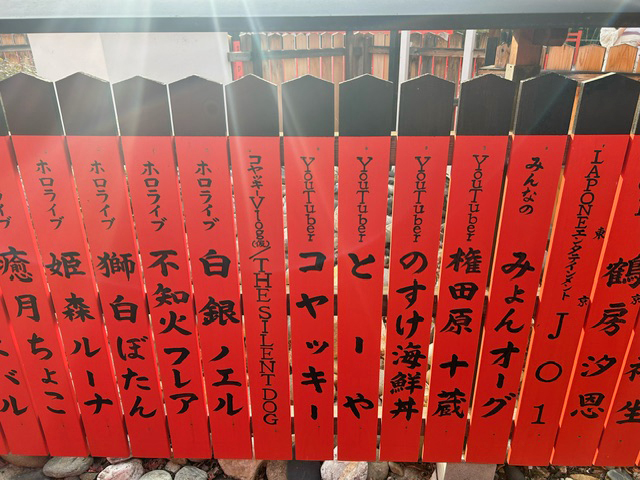 東京
LAPONEエンタテインメント JO1
鶴房汐恩
みんなの
みょんオーグ
YouTuber
権田原十蔵
YouTuber
のすけ海鮮丼
YouTuber
とーや
YouTuber
コヤッキー
コヤッキーVlog(仮)/THE SILENT DOG
ホロライブ
白銀ノエル
ホロライブ
不知火フレア
ホロライブ
獅白ぼたん
ホロライブ
姫森ルーナ
ホロライブ
癒月ちょこ